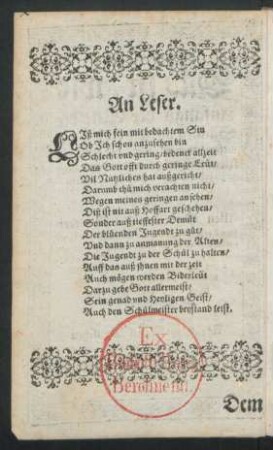 An Leser.
LIß mich fein mit bedachtem Sin
Ob Ich schon anzusehen bin
Schlecht vnd gering/ bedenck allzeit
Das Gott offt durch geringe Leüt/
Vil Nutzlichen hat außgericht/
Darumb thů mich verachten nicht/
Wegen meines geringen ansehen/
Diß ist nit auß Hoffart geschehen/
Sonder auß tieffester Demůt
Der blüenden Jugendt zu gůt/
Vnd dann zu anmanung der Alten/
Die Jugendt zu der Schůl zu halten/
Auff dan auß ihnen mit der zeit
Auch mögen werden Biderleüt
Darzu gebe Gott allermeist/
Sein genad vnd Heyligen Geist/
Auch den Schůlmeister beistand leist.
Ex
Beromiens.
Dem